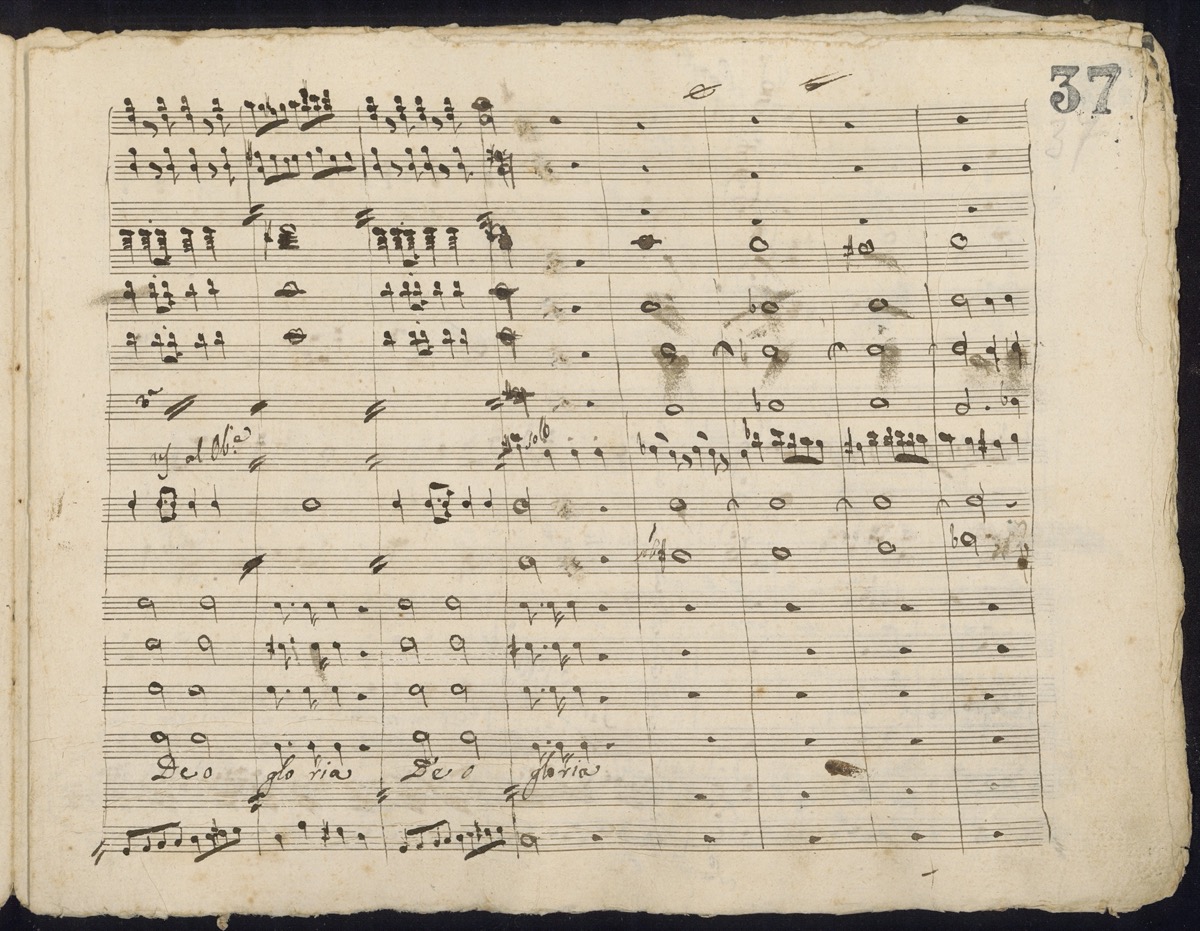 37
37
solo
al Ob:e
Deo gloria Deo gloria